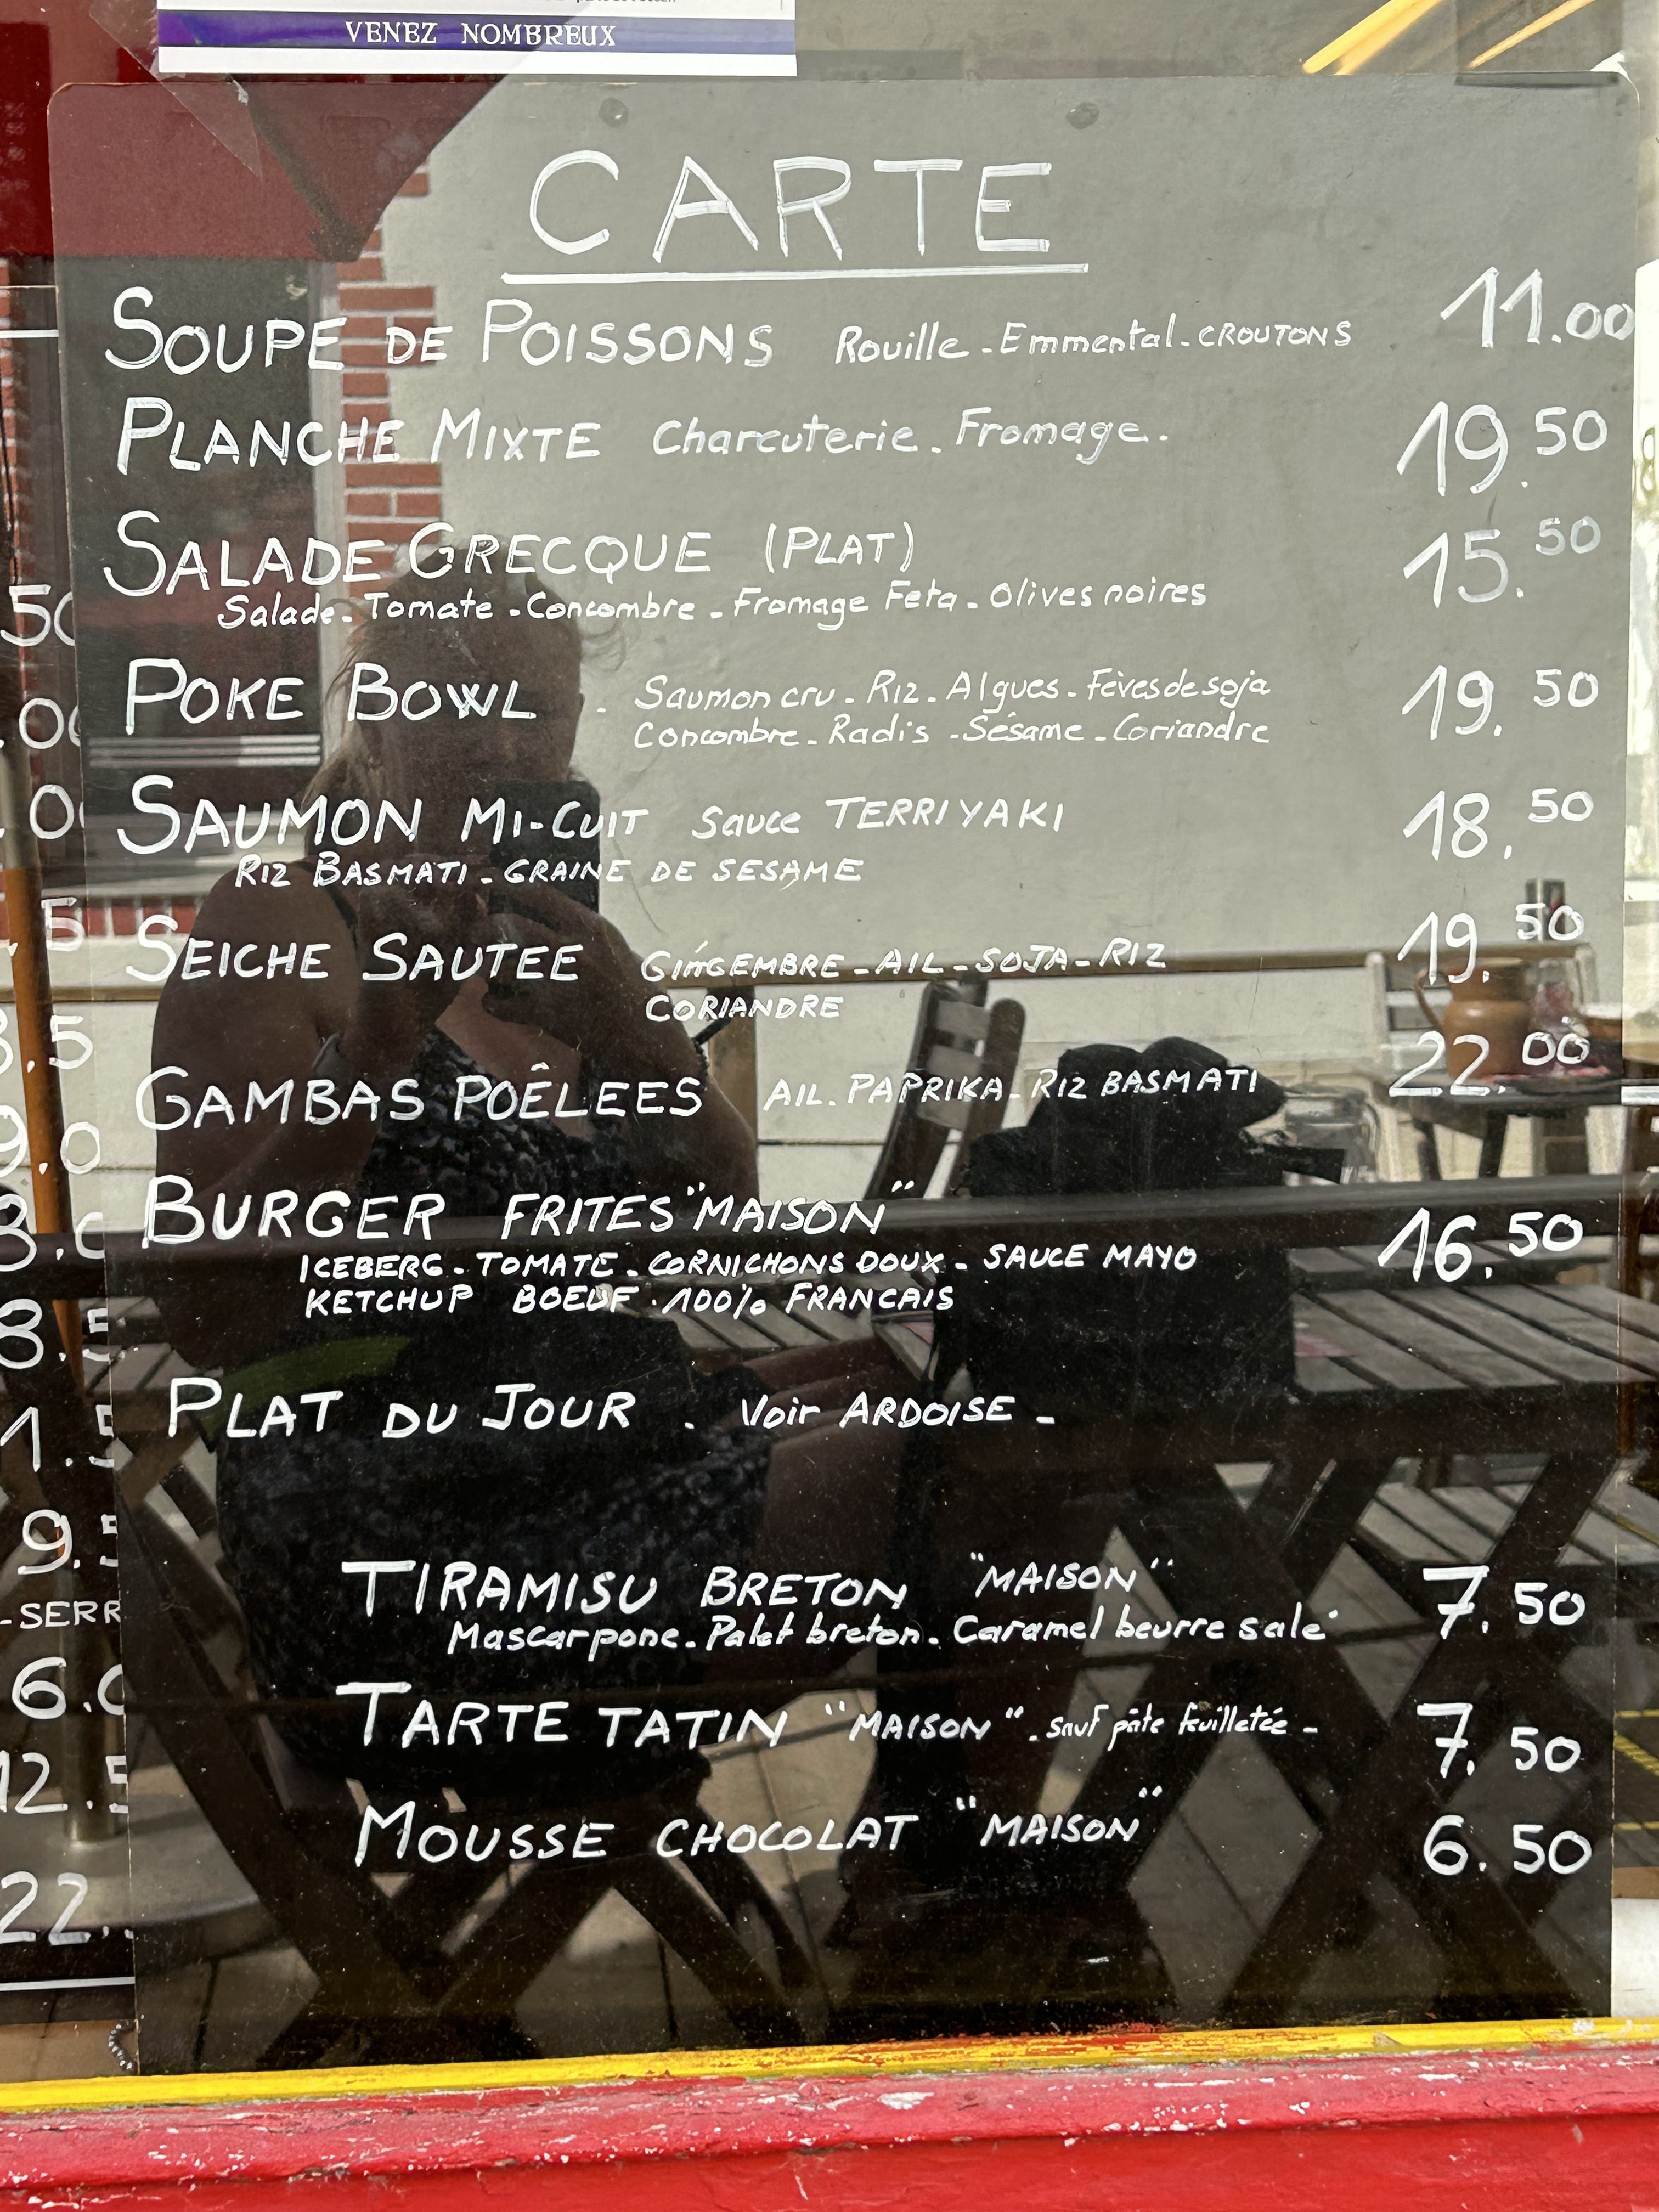 VENEZ NOMBREUX
CARTE
SOUPE DE POISSONS Rouille - Emmental - CROUTONS 11.00
PLANCHE MIXTE Charcuterie - Fromage. 19.50
SALADE GRECQUE (PLAT) 15.50
Salade - Tomate - Concombre - Fromage Feta - Olives noires
POKE BOWL . Saumon cru - Riz - Algues - Fèves de soja 19.50
Concombre - Radis - Sésame - Coriandre
SAUMON MI-CUIT Sauce TERRIYAKI 18.50
RIZ BASMATI - GRAINE DE SESAME
SEICHE SAUTEE GINGEMBRE - AIL - SOJA - RIZ 19.50
CORIANDRE
GAMBAS POÊLEES AIL. PAPRIKA - RIZ BASMATI 22.00
BURGER FRITES "MAISON" 16.50
ICEBERG - TOMATE - CORNICHONS DOUX - SAUCE MAYO
KETCHUP BOEUF . 100% FRANCAIS
PLAT DU JOUR . Voir ARDOISE -
TIRAMISU BRETON "MAISON" 7.50
Mascarpone - Palet breton - Caramel beurre salé
TARTE TATIN "MAISON" . sauf pâte feuilletée - 7.50
MOUSSE CHOCOLAT "MAISON" 6.50